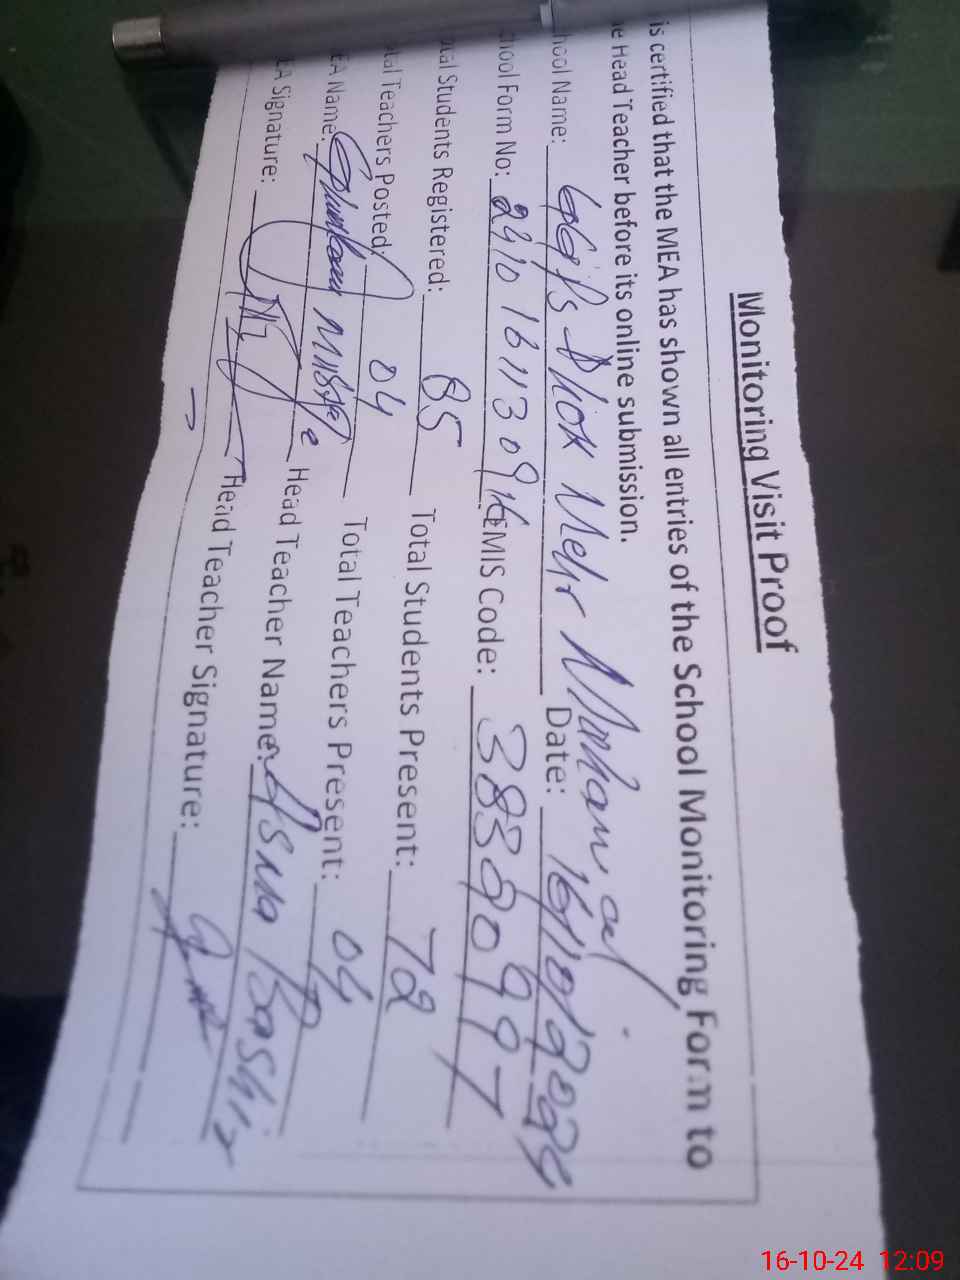 Monitoring Visit Proof
is certified that the MEA has shown all entries of the School Monitoring Form to
e Head Teacher before its online submission.
hool Name: GGPS Dhok Mehr Muhammad Date: 16/10/2024
chool Form No: 2410161130916 EMIS Code: 38390997
tal Students Registered: 85 Total Students Present: 72
tal Teachers Posted: 04 Total Teachers Present: 04
EA Name: Head Teacher Name: Asma Bashir
EA Signature: Head Teacher Signature:
16-10-24 12:09